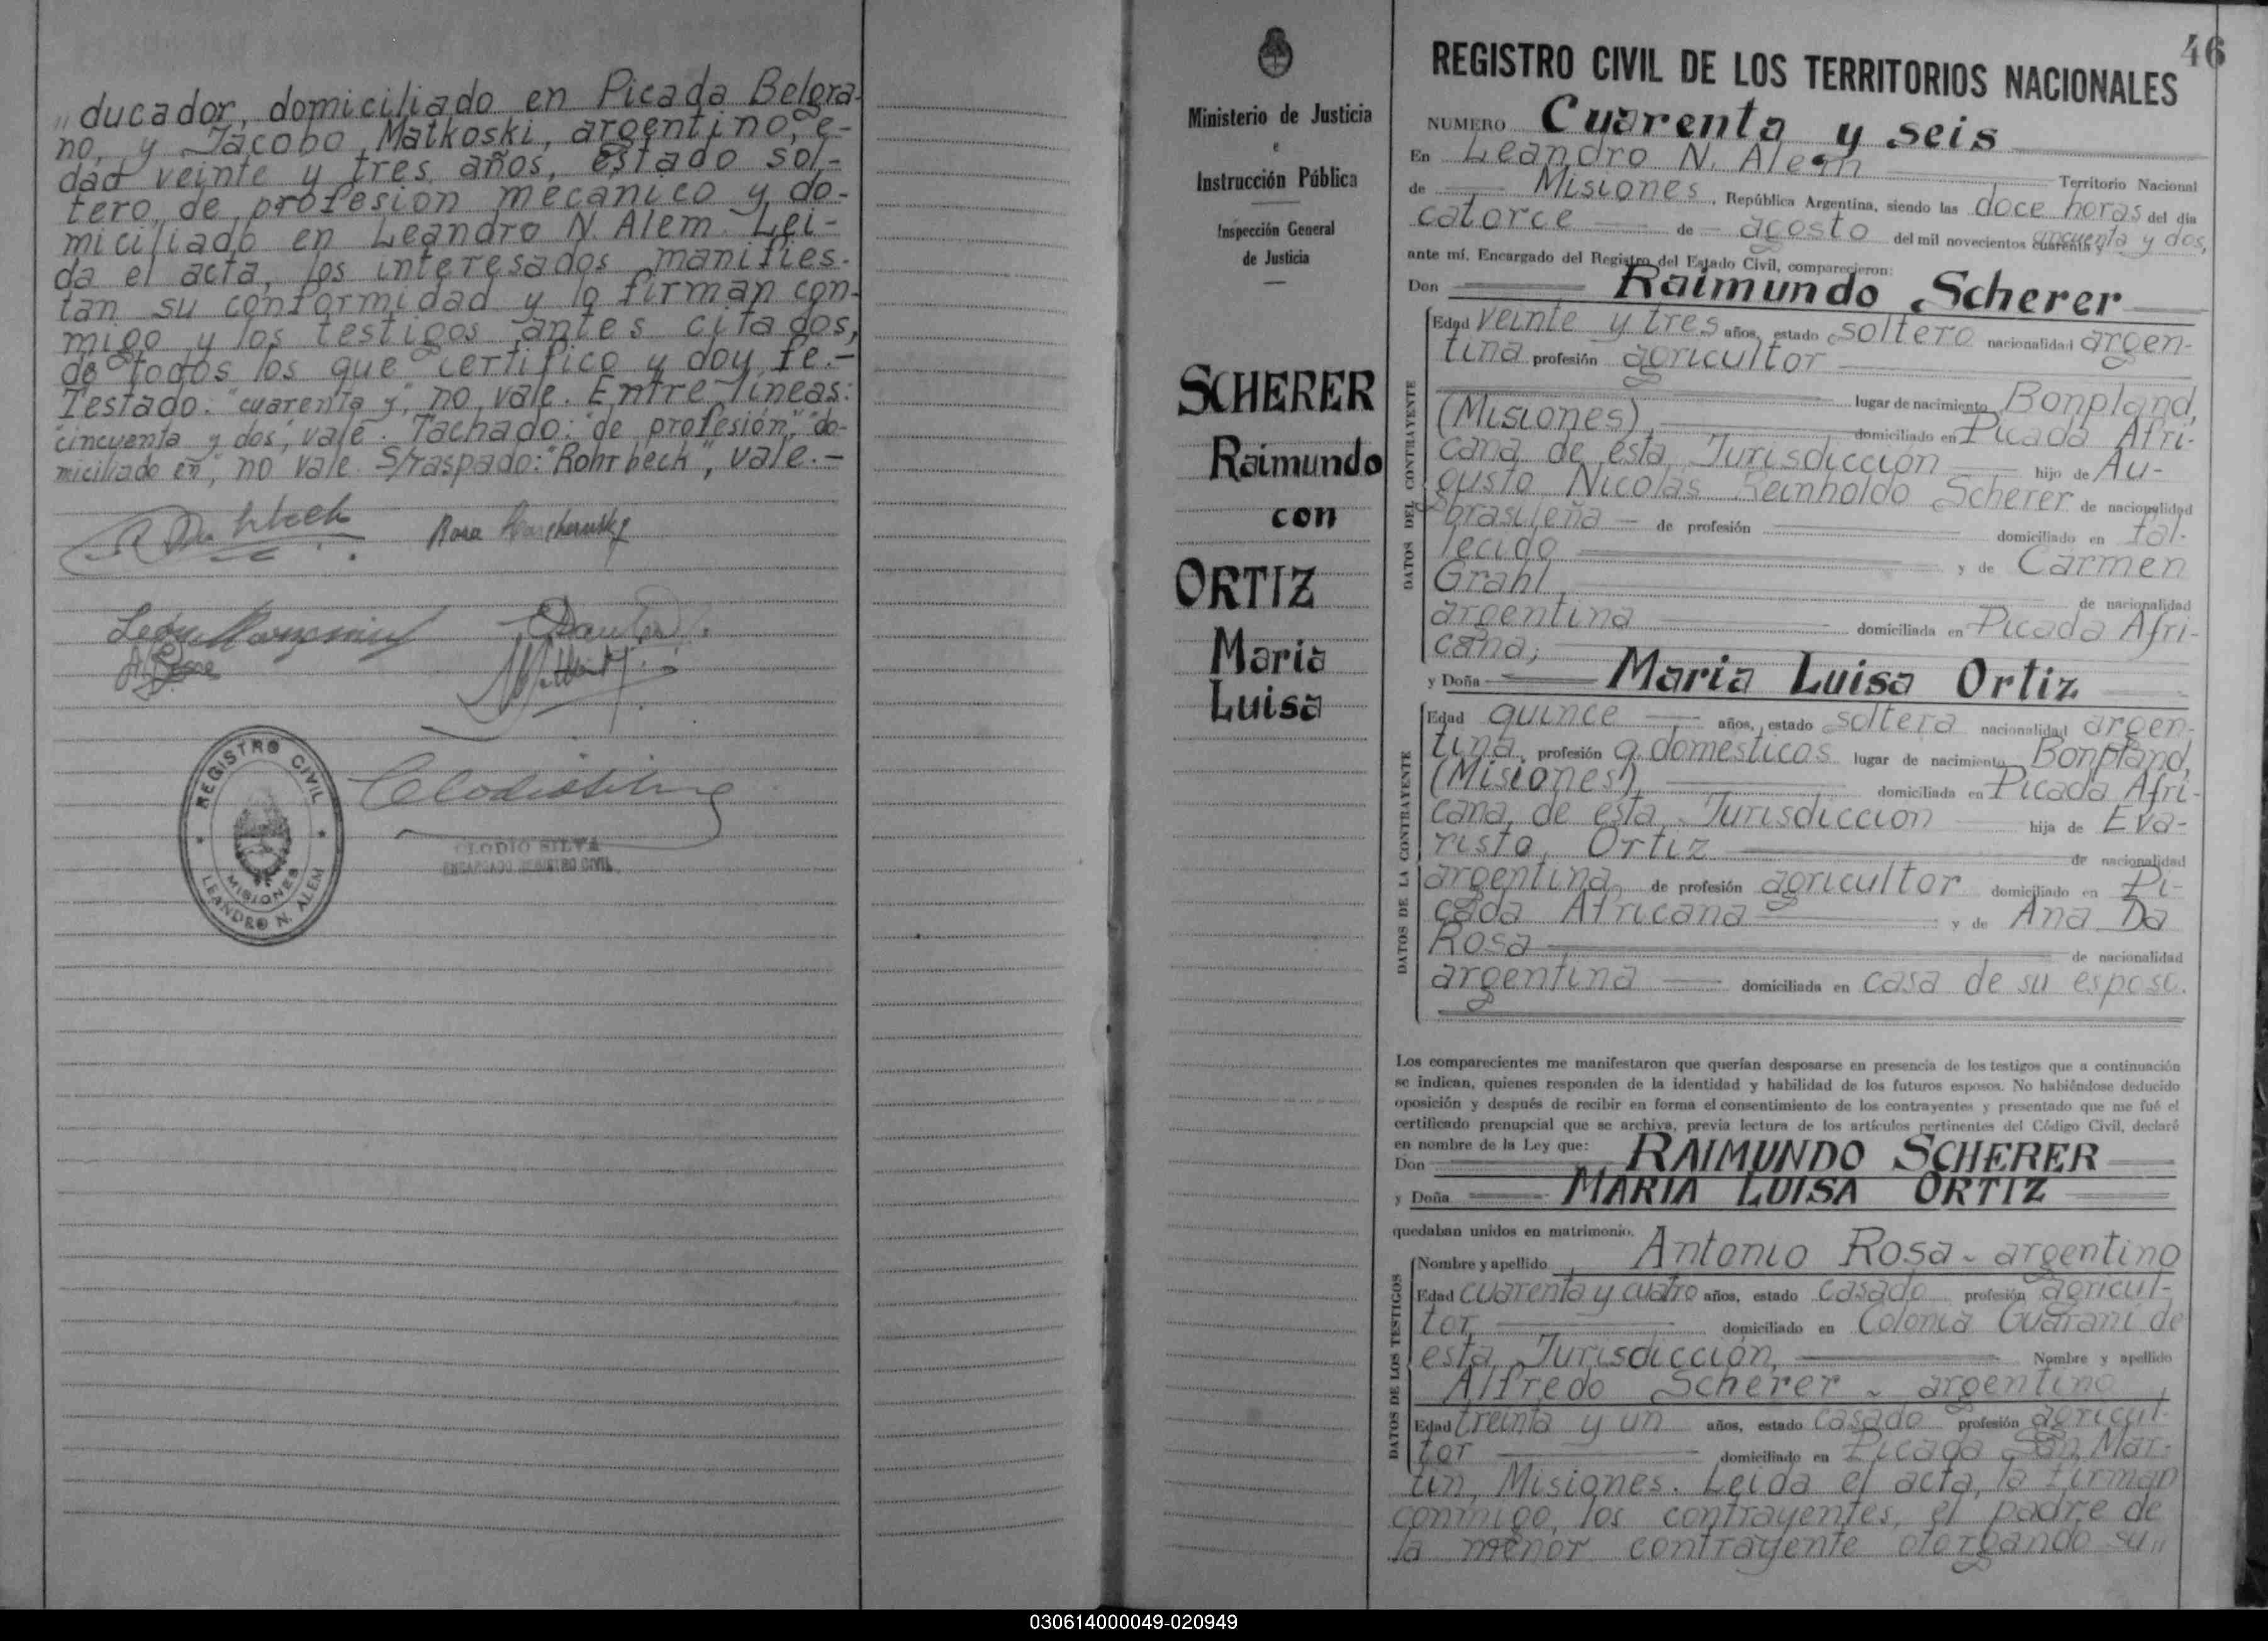 „ducador, domiciliado en Picada Belgra-
no, y Jacobo Matkoski, argentino, e-
dad veinte y tres años, estado sol-
tero, de profesión mecánico y do-
miciliado en Leandro N. Alem. Lei-
da el acta, los interesados manifies-
tan su conformidad y la firman con-
migo y los testigos antes citados,
de todos los que certifico y doy fe.-
Testado: "cuarenta y", no vale. Entre líneas:
"cincuenta y dos", vale. Tachado: "de profesión," "do-
miciliado en", no vale. S/raspado: "Rohrbeck", vale.-
Rosa
REGISTRO CIVIL
MISIONES
LEANDRO N. ALEM
CLODIO SILVA
ENCARGADO REGISTRO CIVIL
Ministerio de Justicia
e
Instrucción Pública
Inspección General
de Justicia
SCHERER
Raimundo
con
ORTIZ
Maria
Luisa
46
REGISTRO CIVIL DE LOS TERRITORIOS NACIONALES
NUMERO Cuarenta y seis
En Leandro N. Alem Territorio Nacional
de Misiones, República Argentina, siendo las doce horas del día
catorce de agosto del mil novecientos cuarenta y cincuenta y dos,
ante mí, Encargado del Registro del Estado Civil, comparecieron:
Don Raimundo Scherer
DATOS DEL CONTRAYENTE
Edad veinte y tres años, estado soltero nacionalidad argen-
tina profesión agricultor
lugar de nacimiento Bonpland,
(Misiones), domiciliado en Picada Afri-
cana de esta Jurisdicción hijo de Au-
gusto Nicolás Reinholdo Scherer de nacionalidad
brasileña - de profesión domiciliado en fal-
lecido y de Carmen
Grahl, de nacionalidad
argentina domiciliada en Picada Afri-
cana;
y Doña Maria Luisa Ortiz
DATOS DE LA CONTRAYENTE
Edad quince años, estado soltera nacionalidad argen-
tina, profesión q. domésticos lugar de nacimiento Bonpland,
(Misiones), domiciliada en Picada Afri-
cana, de esta Jurisdicción hija de Eva-
risto Ortiz de nacionalidad
argentina, de profesión agricultor domiciliado en Pi-
cada Africana y de Ana Da
Rosa de nacionalidad
argentina domiciliada en casa de su esposo.
Los comparecientes me manifestaron que querían desposarse en presencia de los testigos que a continuación
se indican, quienes responden de la identidad y habilidad de los futuros esposos. No habiéndose deducido
oposición y después de recibir en forma el consentimiento de los contrayentes y presentado que me fué el
certificado prenupcial que se archiva, previa lectura de los artículos pertinentes del Código Civil, declaré
en nombre de la Ley que:
Don RAIMUNDO SCHERER
y Doña MARIA LUISA ORTIZ
quedaban unidos en matrimonio.
DATOS DE LOS TESTIGOS
Nombre y apellido Antonio Rosa - argentino
Edad cuarenta y cuatro años, estado casado profesión agricul-
tor, domiciliado en Colonia Guaraní de
esta Jurisdicción, Nombre y apellido
Alfredo Scherer - argentino,
Edad treinta y un años, estado casado profesión agricul-
tor domiciliado en Picada San Mar-
tín, Misiones. Leída el acta, la firman
conmigo, los contrayentes, el padre de
la menor contrayente otorgando su„
030614000049-020949